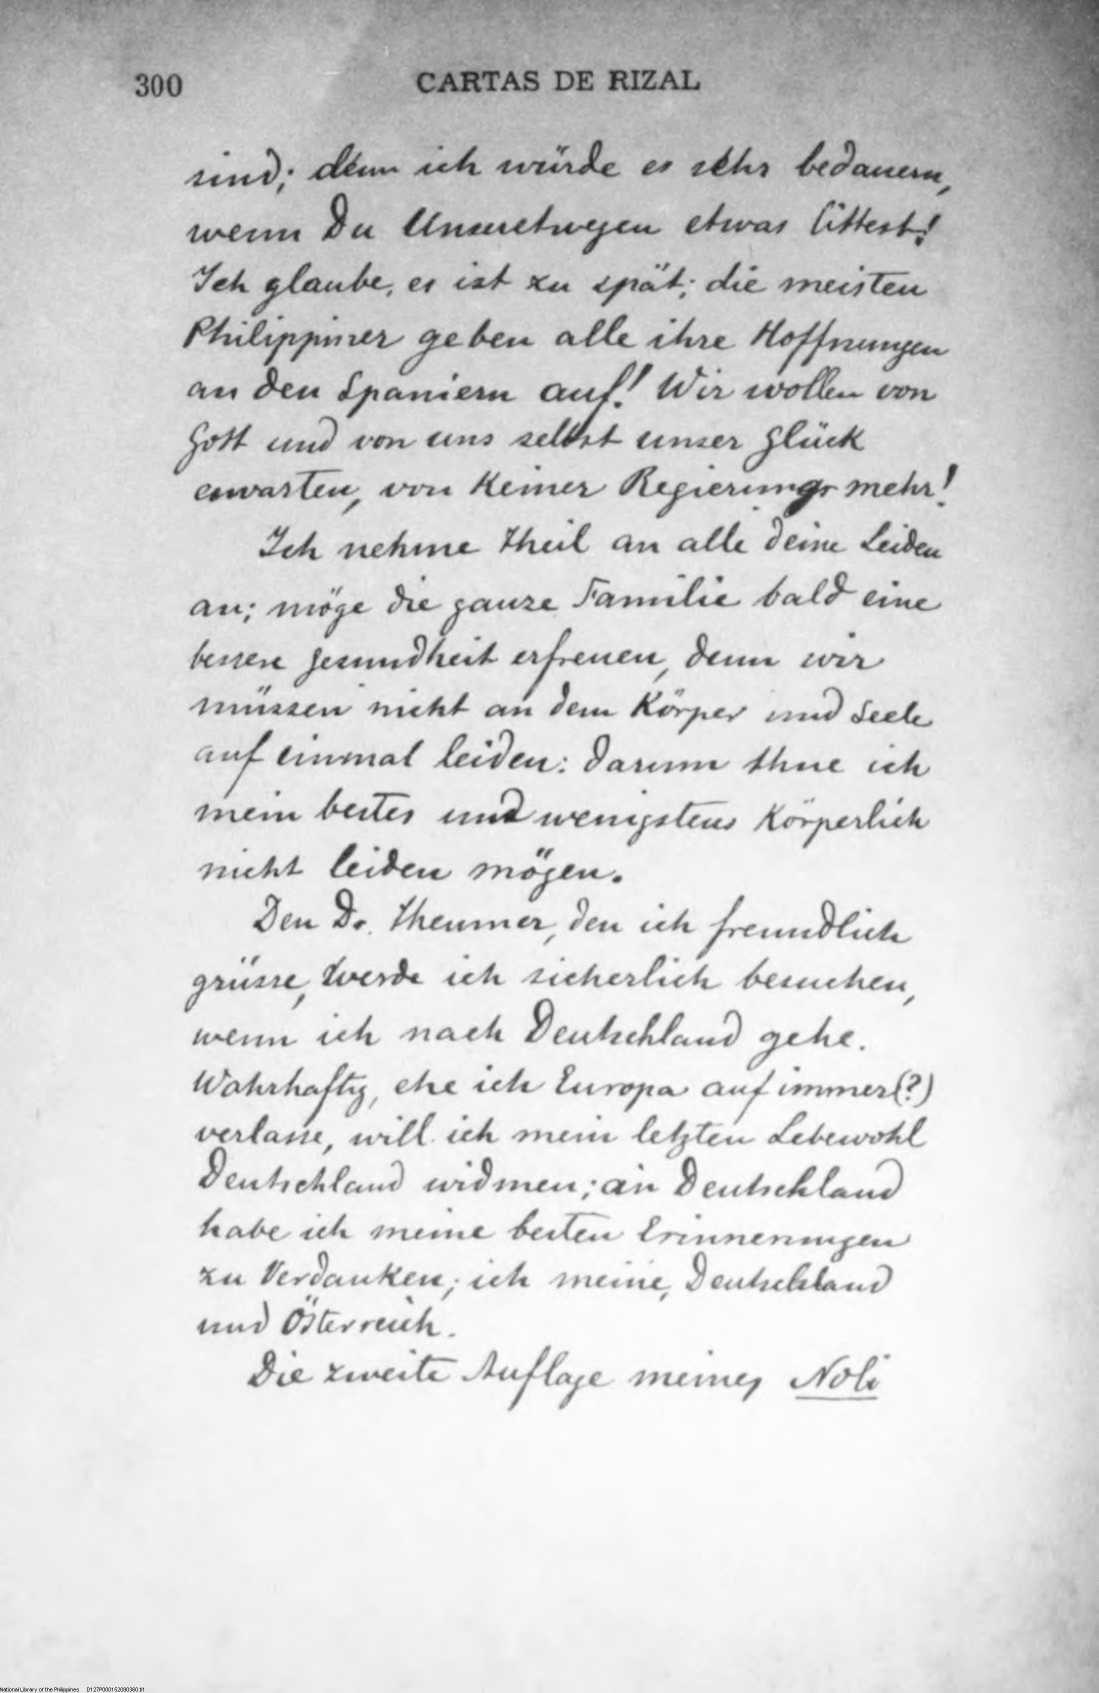 300
CARTAS DE RIZAL
sind; denn ich würde es sehr bedauern,
wenn Du Unseretwegen etwas littest!
Ich glaube, es ist zu spät; die meisten
Philippiner geben alle ihre Hoffnungen
an den Spaniern auf! Wir wollen von
Gott und von uns selbst unser Glück
erwarten, von Keiner Regierung mehr!
Ich nehme theil an alle deine Leiden
an; möge die ganze Familie bald eine
bessere Gesundheit erfreuen, denn wir
müssen nicht an dem Körper und Seele
auf einmal leiden: darum thue ich
mein bestes und wenigstens Körperlich
nicht leiden mögen.
Den Dr. Theumer, den ich freundlich
grüsse, werde ich sicherlich besuchen,
wenn ich nach Deutschland gehe.
Wahrhaftig, ehe ich Europa auf immer(?)
verlasse, will ich mein letzten Lebewohl
Deutschland widmen; an Deutschland
habe ich meine besten Erinnerungen
zu Verdanken; ich meine, Deutschland
und Österreich.
Die zweite Auflage meines Noli
National Library of the Philippines